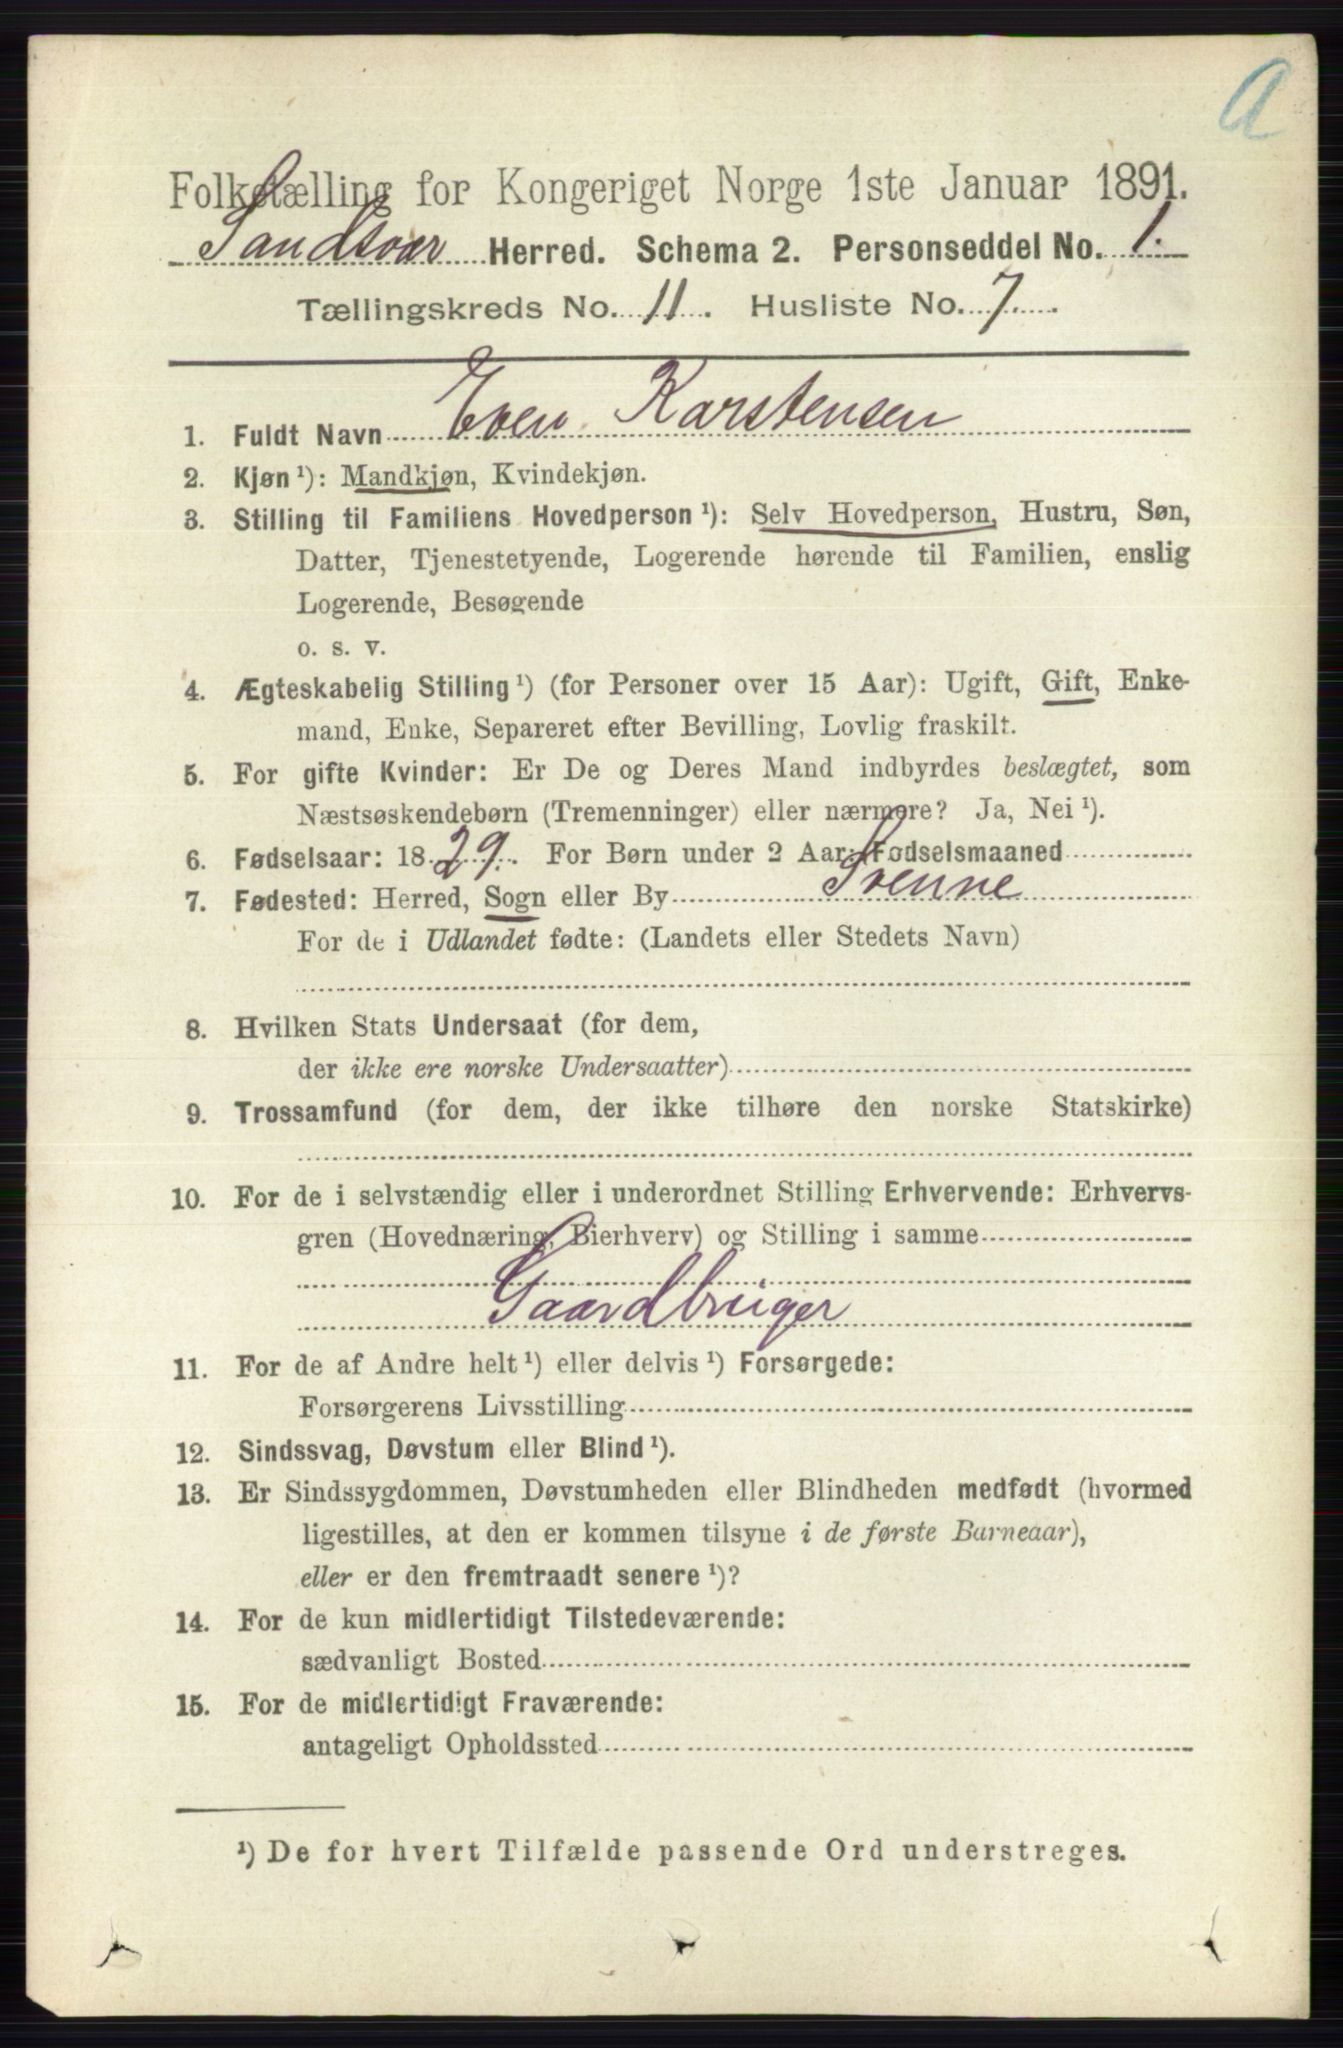 A
Folketælling for Kongeriget Norge 1ste Januar 1891.
Sandsvær Herred. Schema 2. Personseddel No. 1.
Tællingskreds No. 11. Husliste No. 7.
1. Fuldt Navn Even Karstensen
2. Kjøn ¹): Mandkjøn, Kvindekjøn.
3. Stilling til Familiens Hovedperson ¹): Selv Hovedperson, Hustru, Søn,
Datter, Tjenestetyende, Logerende hørende til Familien, enslig
Logerende, Besøgende
o. s. v.
4. Ægteskabelig Stilling ¹) (for Personer over 15 Aar): Ugift, Gift, Enke-
mand, Enke, Separeret efter Bevilling, Lovlig fraskilt.
5. For gifte Kvinder: Er De og Deres Mand indbyrdes beslægtet, som
Næstsøskendebørn (Tremenninger) eller nærmere? Ja, Nei ¹).
6. Fødselsaar: 1829. For Børn under 2 Aar: Fødselsmaaned
7. Fødested: Herred, Sogn eller By Svenne
For de i Udlandet fødte: (Landets eller Stedets Navn)
8. Hvilken Stats Undersaat (for dem,
der ikke ere norske Undersaatter)
9. Trossamfund (for dem, der ikke tilhøre den norske Statskirke)
10. For de i selvstændig eller i underordnet Stilling Erhvervende: Erhvervs-
gren (Hovednæring, Bierhverv) og Stilling i samme
Gaardbruger
11. For de af Andre helt ¹) eller delvis ¹) Forsørgede:
Forsørgerens Livsstilling
12. Sindssvag, Døvstum eller Blind ¹).
13. Er Sindssygdommen, Døvstumheden eller Blindheden medfødt (hvormed
ligestilles, at den er kommen tilsyne i de første Barneaar),
eller er den fremtraadt senere ¹)?
14. For de kun midlertidigt Tilstedeværende:
sædvanligt Bosted
15. For de midlertidigt Fraværende:
antageligt Opholdssted
¹) De for hvert Tilfælde passende Ord understreges.